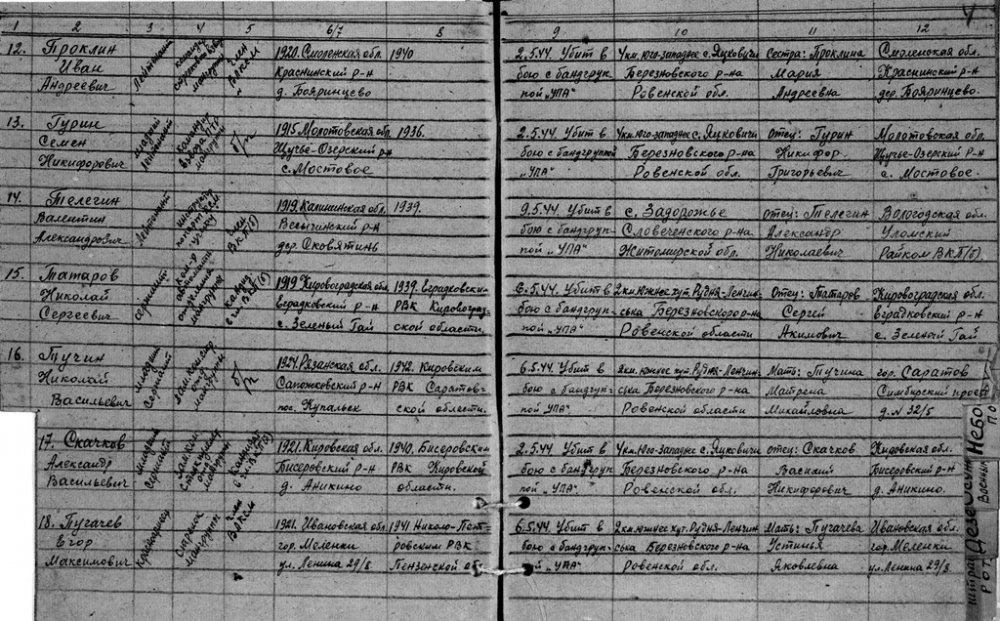 1 2 3 4 5 6/7 8 9 10 11 12
4
12. Проклин
Иван
Андреевич
Лейтенант
член
ВЛКСМ
1920. Смоленская обл. 1940
Краснинский р-н
д. Бояринцево
2.5.44. Убит в
бою с бандгруп
пой „УПА"
4 км. юго-западнее с. Яцковичи
Березновского р-на
Ровенской обл.
Сестра: Проклина
Мария
Андреевна
Смоленская обл.
Краснинский р-н
дер. Бояринцево.
13. Гурин
Семен
Никифорович
младший
лейтенант
командир
взвода ПТР
мангруппы
б/п
1915. Молотовская обл. 1936.
Щучье-Озерский р-н
с. Мостовое
2.5.44. Убит в
бою с бандгруппой
„УПА"
4 км. юго-западнее с. Яцковичи
Березновского р-на
Ровенской обл.
отец: Гурин
Никифор
Григорьевич
Молотовская обл.
Щучье-Озерский р-н
с. Мостовое.
14. Телегин
Валентин
Александрович
Лейтенант
член
ВКП(б)
1919. Калининская обл. 1939.
Весьегинский р-н
дер. Сковятинь
9.5.44. Убит в
бою с бандгруп
пой „УПА"
с. Задорожье
Словеченского р-на
Житомирской обл.
отец: Телегин
Александр
Николаевич
Вологодская обл.
Уломский
Райком ВКП(б).
15. Татаров
Николай
Сергеевич
сержант
отделения
мангруппы
1919. Кировоградская обл. 1939. вградковским
вградковский р-н РВК Кировоград-
с. Зеленый Гай ской области.
6.5.44. Убит в
бою с бандгруп
пой „УПА"
2 км. южнее хут. Рудня-Ленчин-
ська Березновского р-на
Ровенской области
Отец: Татаров
Сергей
Акимович
Кировоградская обл.
вградковский р-н
с. Зеленый Гай
16. Тучин
Николай
Васильевич
младший
сержант
мангруппы
б/п
1924. Рязанская обл. 1942. Кировским
Сапожковский р-н РВК Саратов-
пос. Купальск ской области.
6.5.44. Убит в
бою с бандгруп
пой „УПА"
2 км. южнее хут. Рудня-Ленчин-
ська Березновского р-на
Ровенской области
Мать: Тучина
Матрена
Михайловна
гор. Саратов
Симбирский
д. № 32/5
17. Скачков
Александр
Васильевич
младший
сержант
мангруппы
кандидат
в чл. ВКП(б)
1921. Кировская обл. 1940. Бисеровским
Бисеровский р-н РВК Кировской
д. Аникино области.
2.5.44. Убит в
бою с бандгруп
пой „УПА"
4 км. юго-западнее с. Яцковичи
Березновского р-на
Ровенской обл.
отец: Скачков
Василий
Никифорович
Кировская обл.
Бисеровский р-н
д. Аникино.
18. Пугачев
Егор
Максимович
Красноармеец
Стрелок
мангруппы
член
ВЛКСМ
1921. Ивановская обл. 1941 Николо-Пест-
гор. Меленки ровским РВК
ул. Ленина 29/8 Пензенской об
6.5.44. Убит в
бою с бандгруп
„УПА"
2 км. южнее хут. Рудня-Ленчин
ська Березновского р-на
Ровенской обл.
Мать: Пугачева
Устинья
Яковлевна
Ивановская обл.
гор. Меленки
ул. Ленина 29/8.